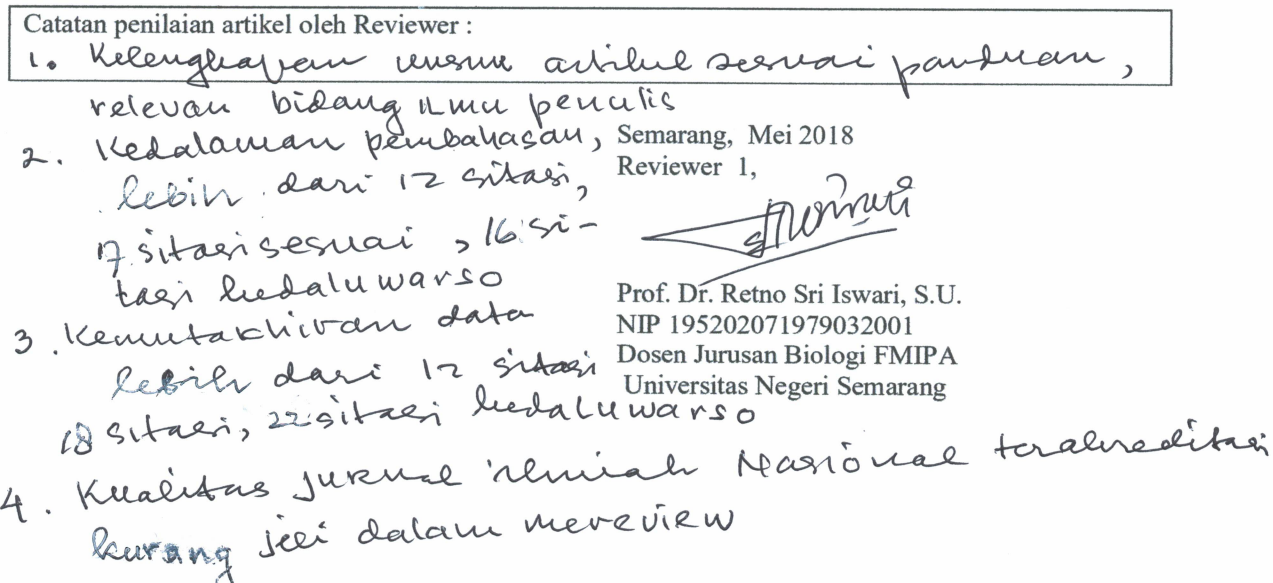 Catatan penilaian artikel oleh Reviewer :
1. Kelengkapan unsur artikel sesuai panduan,
relevan bidang ilmu penulis
2. Kedalaman pembahasan,
lebih dari 12 sitasi,
17 sitasi sesuai, 16 si-
tasi kedaluwarso
3. Kemutakhiran data
lebih dari 12 sitasi
18 sitasi, 22 sitasi kedaluwarso
4. Kualitas jurnal ilmiah Nasional terakreditasi
kurang jeli dalam mereview
Semarang, Mei 2018
Reviewer 1,
Prof. Dr. Retno Sri Iswari, S.U.
NIP 195202071979032001
Dosen Jurusan Biologi FMIPA
Universitas Negeri Semarang